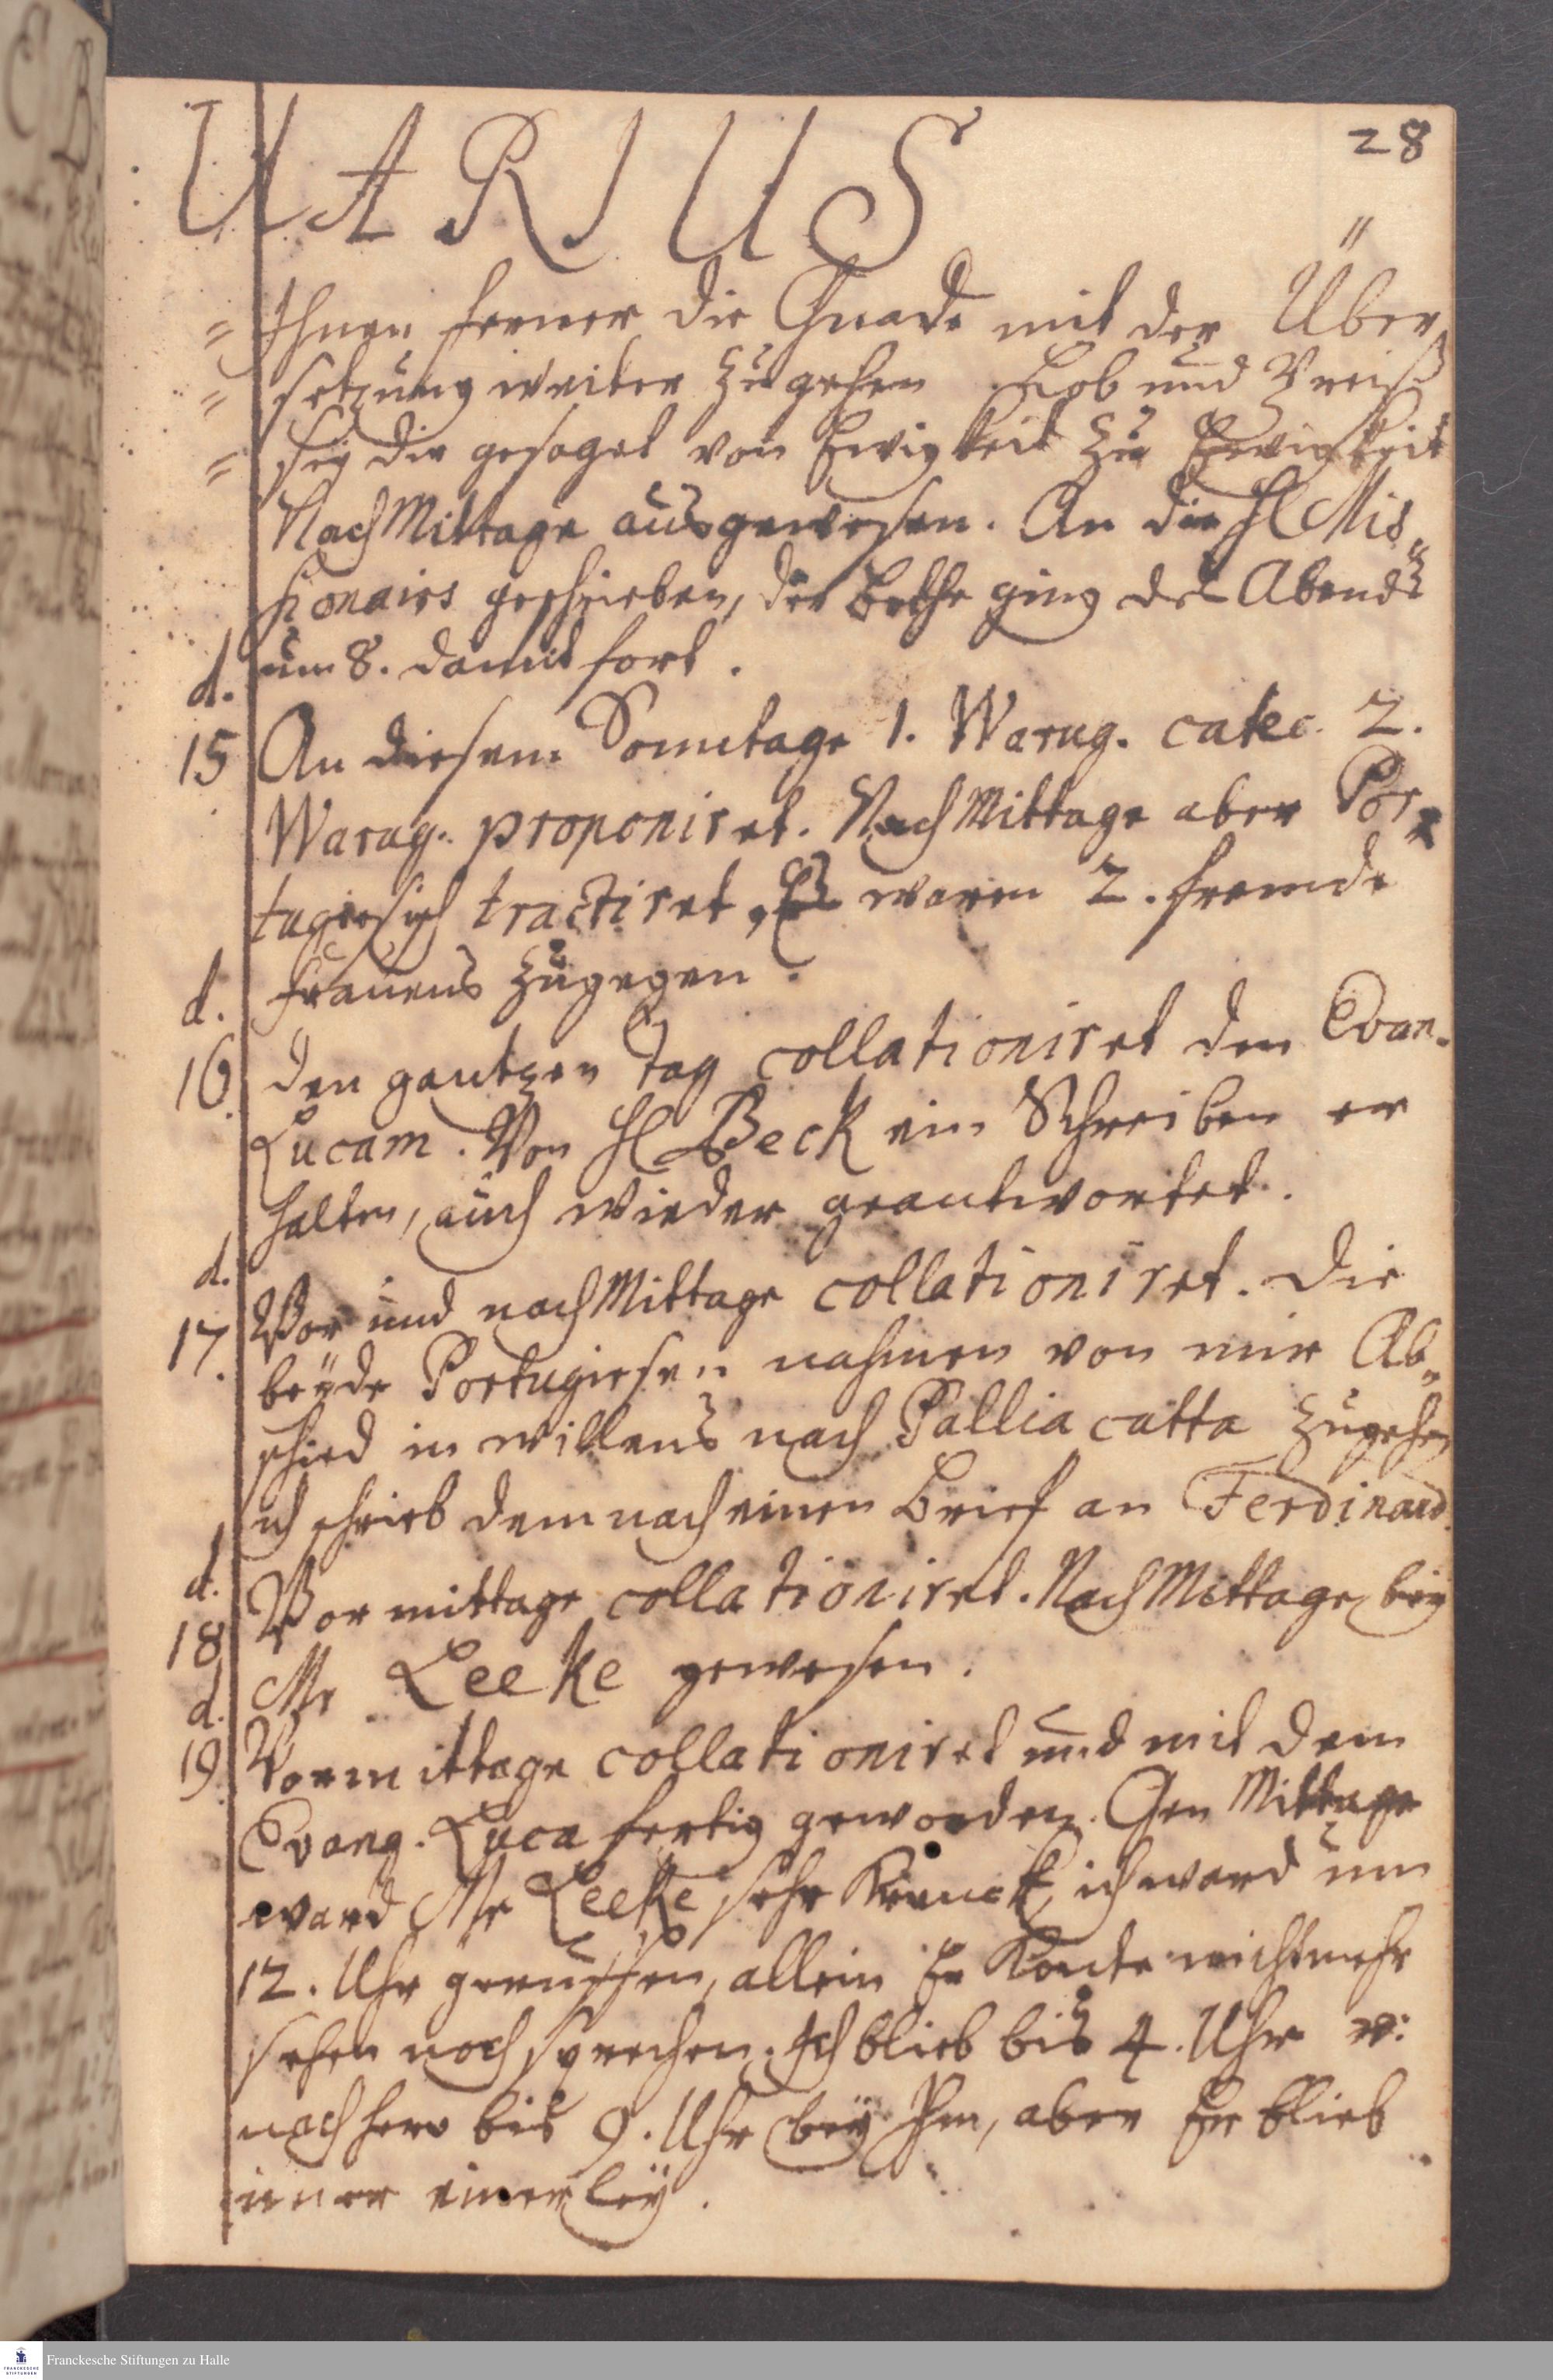 28
UARIUS
Ihnen ferner die Gnade mit der Über
setzung weiter zu gehen Lob und Preiß
seÿ dir gesaget von Ewigkeit zu Ewigkeit
NachMittage ausgewesen. An die H Mis„
sionairs geschrieben, der Bothe ging des Abends
um 8. damit fort.
d.
15 An diesem Sonntage 1. Warug. catec. 2.
Warug. proponiret. NachMittage aber Por
tugiesisch tractiret, Es waren 2. fremde
Frauens zugegen.
d.
16 den gantzen Tag collationiret den Evan.
Lucam. Von H Beck ein Schreiben er
halten, auch wieder geantwortet.
d.
17. Vor und nachMittage collationiret. Die
beÿde Portugiesen nahmen von mir Ab„
schied in willens nach Palliacatta zugehen
ich schrieb dem nach einen Brief an Ferdinand.
d.
18 Vormittage collationiret. NachMittage beÿ
Mr Leeke gewesen.
d.
19 Vormittage collationiret und mit dem
Evang. Luca fertig geworden. Gen Mittage
ward Mr Leeke sehr Kranck, ich ward um
12. Uhr geruffen, allein Er Konte nicht mehr
sehen noch sprechen. Ich blieb bis 4. Uhr u:
nachhero bis 9. Uhr beÿ Ihm, aber Er blieb
imer einerleÿ.
Franckesche Stiftungen zu Halle
FRANCKESCHE
STIFTUNGEN